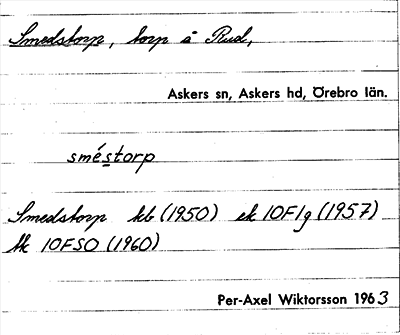 Smedstorp, torp å Rud,
Askers sn, Askers hd, Örebro län.
sméstorp
Smedstorp kb (1950) ek 10F1g (1957)
tk 10FSO (1960)
Per-Axel Wiktorsson 1963